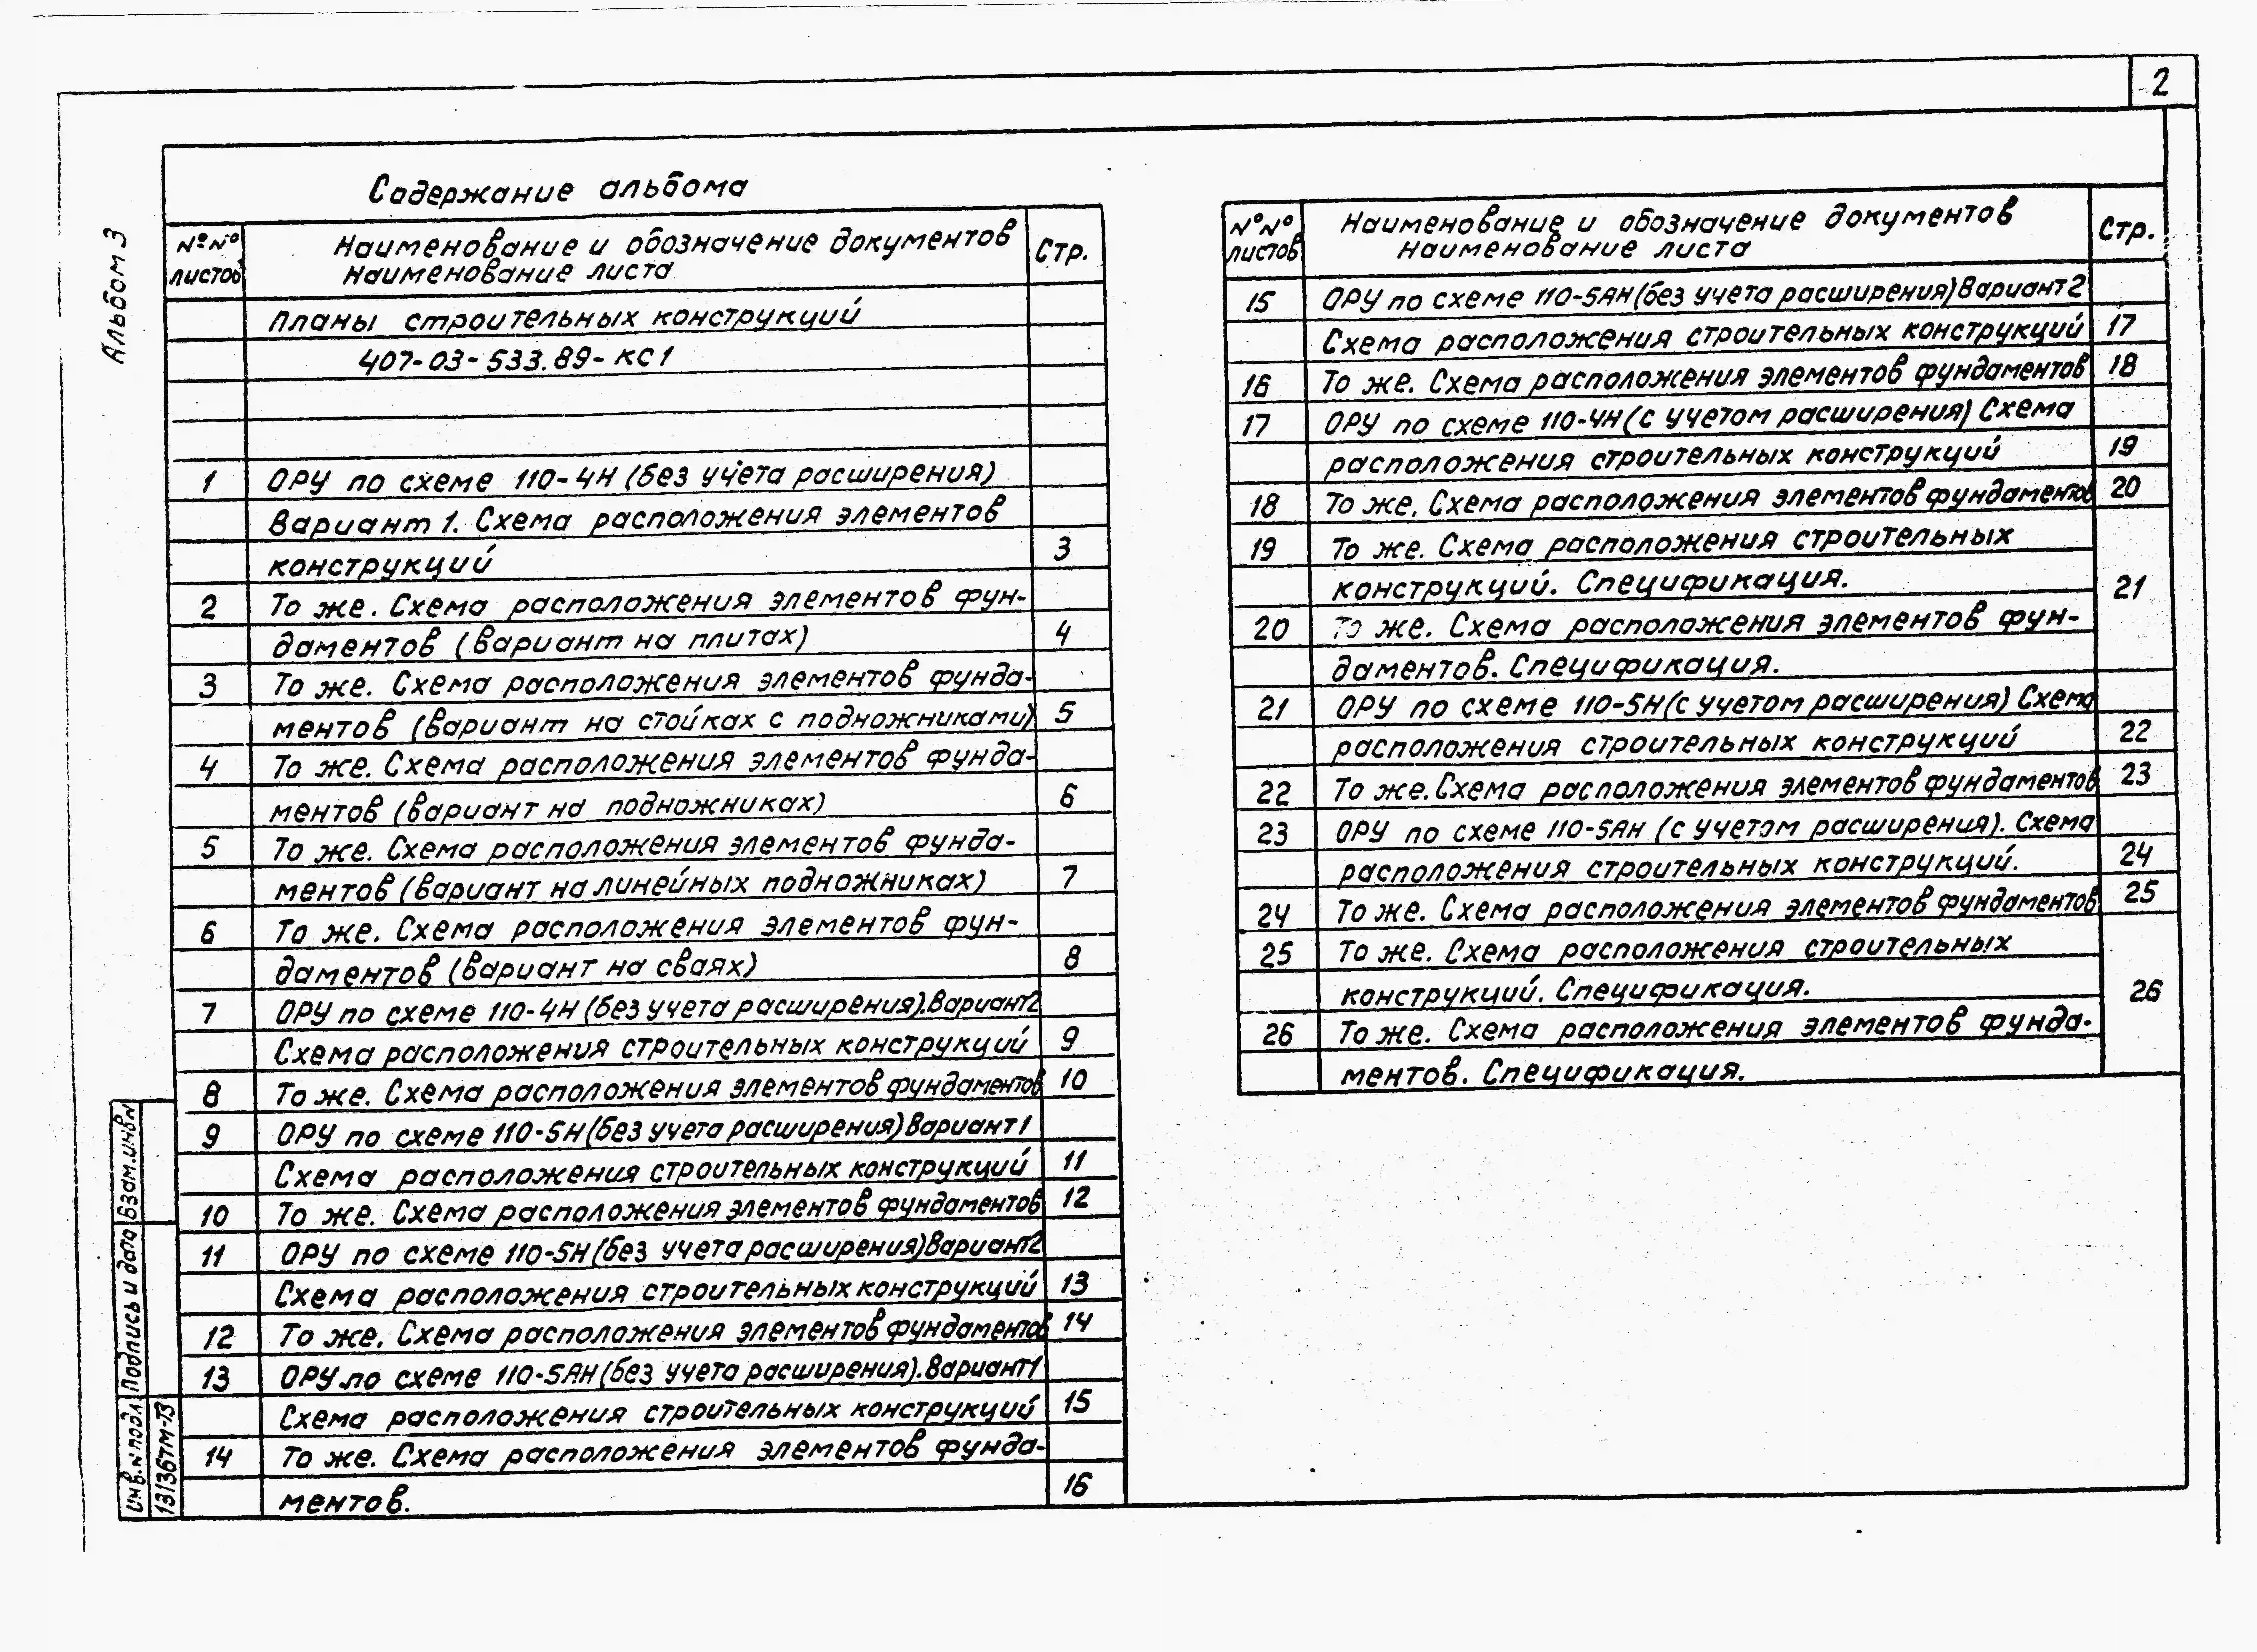 2
Альбом 3
Содержание альбома
№№ листов
Наименование и обозначение документов
Наименование листа
Стр.
Планы строительных конструкций
407-03-533.89-КС1
1 ОРУ по схеме 110-4Н (без учета расширения)
Вариант 1. Схема расположения элементов
конструкций 3
2 То же. Схема расположения элементов фун-
даментов (Вариант на плитах) 4
3 То же. Схема расположения элементов фунда-
ментов (Вариант на стойках с подножниками) 5
4 То же. Схема расположения элементов фунда-
ментов (Вариант на подножниках) 6
5 То же. Схема расположения элементов фунда-
ментов (Вариант на линейных подножниках) 7
6 То же. Схема расположения элементов фун-
даментов (Вариант на сваях) 8
7 ОРУ по схеме 110-4Н (без учета расширения). Вариант 2
Схема расположения строительных конструкций 9
8 То же. Схема расположения элементов фундаментов 10
9 ОРУ по схеме 110-5Н (без учета расширения) Вариант 1
Схема расположения строительных конструкций 11
10 То же. Схема расположения элементов фундаментов 12
11 ОРУ по схеме 110-5Н (без учета расширения) Вариант 2
Схема расположения строительных конструкций 13
12 То же. Схема расположения элементов фундаментов 14
13 ОРУ по схеме 110-5АН (без учета расширения). Вариант 1
Схема расположения строительных конструкций 15
14 То же. Схема расположения элементов фунда-
ментов. 16
№№ листов
Наименование и обозначение документов
Наименование листа
Стр.
15 ОРУ по схеме 110-5АН (без учета расширения) Вариант 2
Схема расположения строительных конструкций 17
16 То же. Схема расположения элементов фундаментов 18
17 ОРУ по схеме 110-4Н (с учетом расширения) Схема
расположения строительных конструкций 19
18 То же. Схема расположения элементов фундаментов 20
19 То же. Схема расположения строительных
конструкций. Спецификация. 21
20 То же. Схема расположения элементов фун-
даментов. Спецификация.
21 ОРУ по схеме 110-5Н (с учетом расширения) Схема
расположения строительных конструкций 22
22 То же. Схема расположения элементов фундаментов 23
23 ОРУ по схеме 110-5АН (с учетом расширения). Схема
расположения строительных конструкций. 24
24 То же. Схема расположения элементов фундаментов 25
25 То же. Схема расположения строительных
конструкций. Спецификация. 26
26 То же. Схема расположения элементов фунда-
ментов. Спецификация.
Взам. инв.№
Подпись и дата
Инв.№ подл.
13136тм-т3